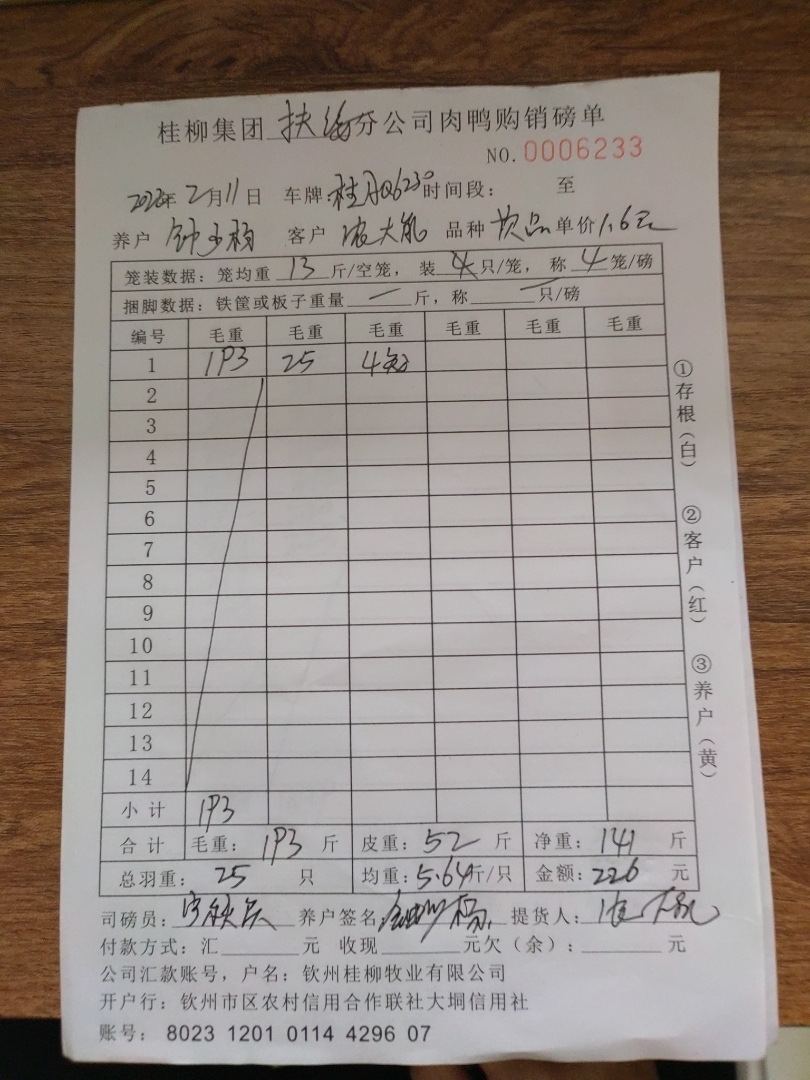 桂柳集团 扶绥 分公司肉鸭购销磅单
NO. 0006233
年 2月11日 车牌: 时间段: 至
养户 客户 品种 次品 单价 1.6元
笼装数据: 笼均重 13 斤/空笼, 装 只/笼, 称 4 笼/磅
捆脚数据: 铁筐或板子重量 — 斤, 称 — 只/磅
编号 毛重 毛重 毛重 毛重 毛重 毛重
1 193 25 4
2
3
4
5
6
7
8
9
10
11
12
13
14
小计 193
合计 毛重: 193 斤 皮重: 52 斤 净重: 141 斤
总羽重: 25 只 均重: 5.64斤/只 金额: 226 元
司磅员: 养户签名 提货人:
付款方式: 汇 元 收现 元欠(余): 元
公司汇款账号, 户名: 钦州桂柳牧业有限公司
开户行: 钦州市区农村信用合作联社大垌信用社
账号: 8023 1201 0114 4296 07
①存根(白) ②客户(红) ③养户(黄)